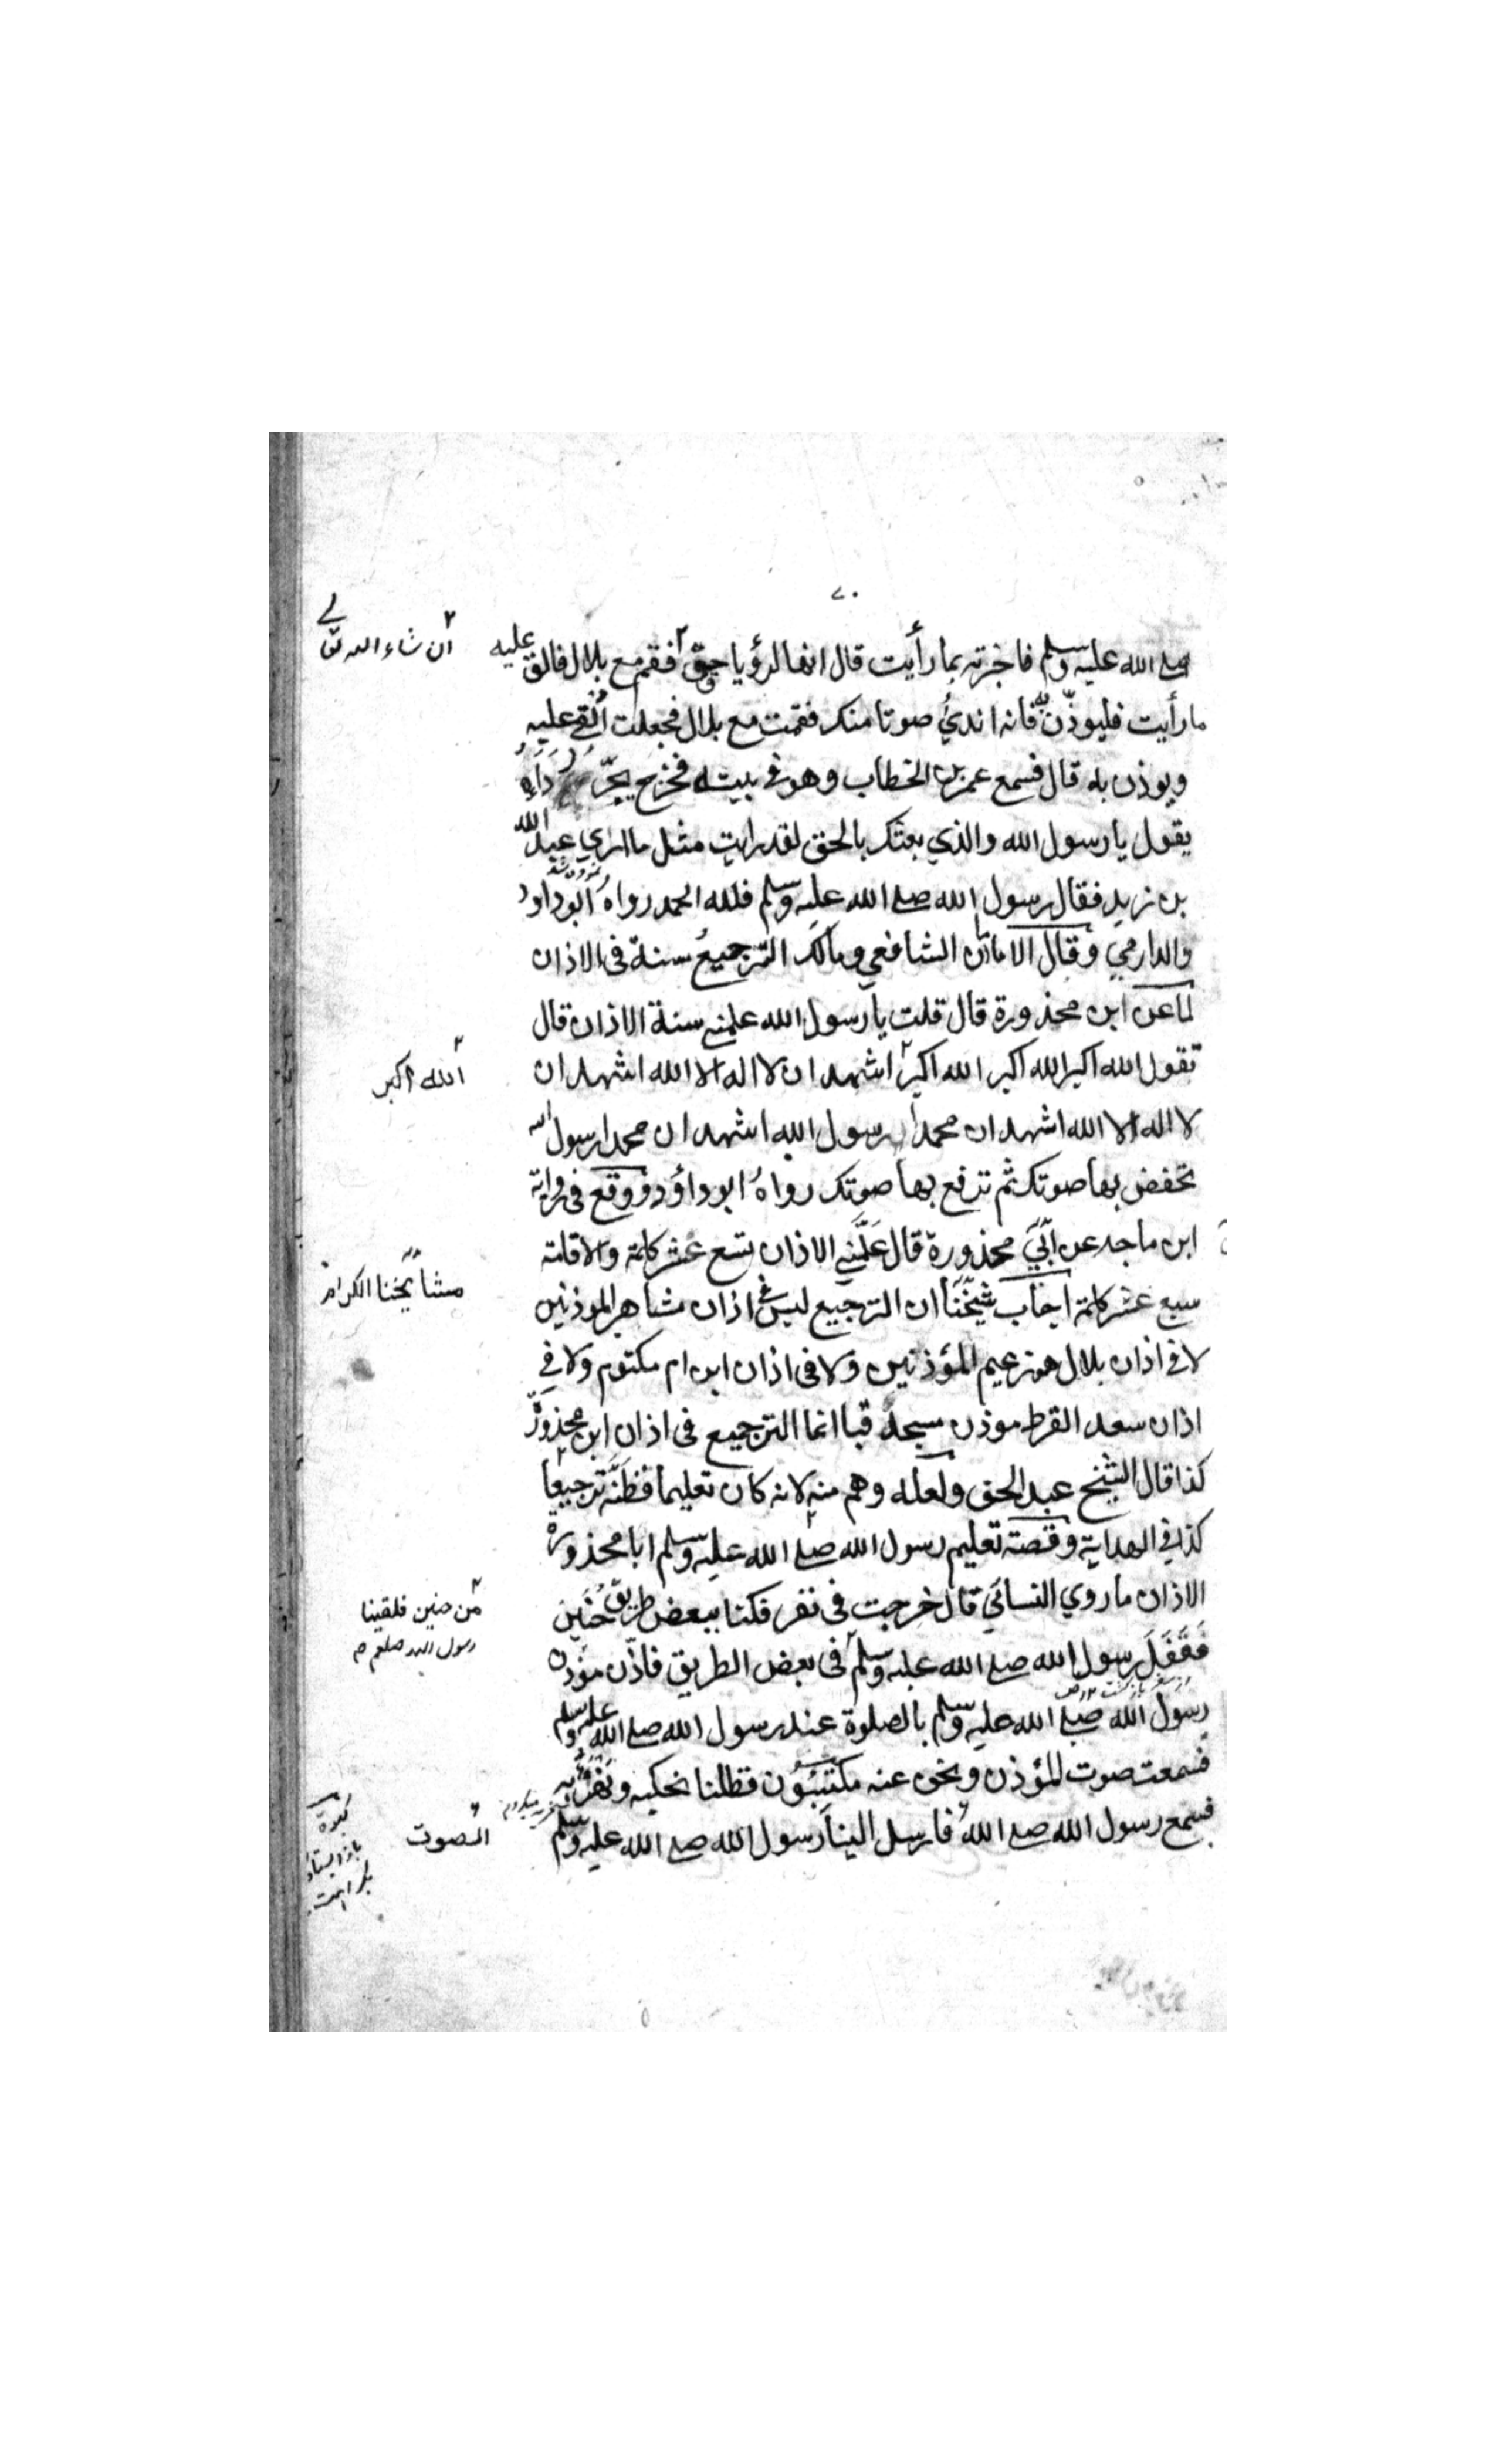 ٧٠
صلے الله عليه وسلم فاخبرته بما رأيت قال انها لرؤيا حق ٢ فقم مع بلال فالق عليه
ان شاء الله تعالے
ما رأيت فليوذّن به فانه اندي صوتا منك فقمت مع بلال فجعلت اُلقے عليه
ويوذن به قال فسمع عمر بن الخطاب وهو فى بيته فخرج يجرّ رداءه
يقول يا رسول الله والذي بعثك بالحق لقد رايت مثل ما اري عبد الله
بن زيد فقال رسول الله صلے الله عليه وسلم فلله الحمد رواه ابوداود
والدارمي وقال الامامان الشافعي ومالك الترجيع سنة فى الاذان
لما عن ابن محذورة قال قلت يا رسول الله علمنے سنة الاذان قال
تقول الله اكبر الله اكبر الله اكبر ٢ اشهد ان لا اله الا الله اشهد ان
الله اكبر
لا اله الا الله اشهد ان محمدا رسول الله اشهد ان محمدا رسول الله
تخفض بها صوتك ثم ترفع بها صوتك رواه ابو داؤد ووقع فى رواية
ابن ماجه عن ابي محذورة قال عَلَّمَنِے الاذان تسع عشر كلمة والاقامة
سبع عشر كلمة اجاب شيخنا ان الترجيع ليس فى اذان مشاهير الموذنين
مشائخنا الكرام
لا فى اذان بلال هو زعيم المؤذنين ولا فى اذان ابن ام مكتوم ولا في
اذان سعد القرط موذن مسجد قبا انما الترجيع فى اذان ابن محذورة
كذا قال الشيخ عبد الحق ولعله وهم منه لانه كان تعليما فظنّه ترجيعا
كذا في الهداية وقصة تعليم رسول الله صلے الله عليه وسلم ابا محذورة
الاذان ما روي النسائي قال خرجت فى نفر فكنا ببعض طريق حُنَين
فَقَفَلَ رسول الله صلے الله عليه وسلم ٢ فى بعض الطريق فاذّن مؤذن
من حنين فلقينا
رسول الله صلعم
رسول الله صلے الله عليه وسلم بالصلوة عند رسول الله صلے الله عليه وسلم
فسمعت صوت المؤذن ونحن عنه مكتبئون فظلنا نحكيه ونهزئ به
فسمع رسول الله صلے الله فارسل الينا رسول الله صلے الله عليه وسلم
الصوت